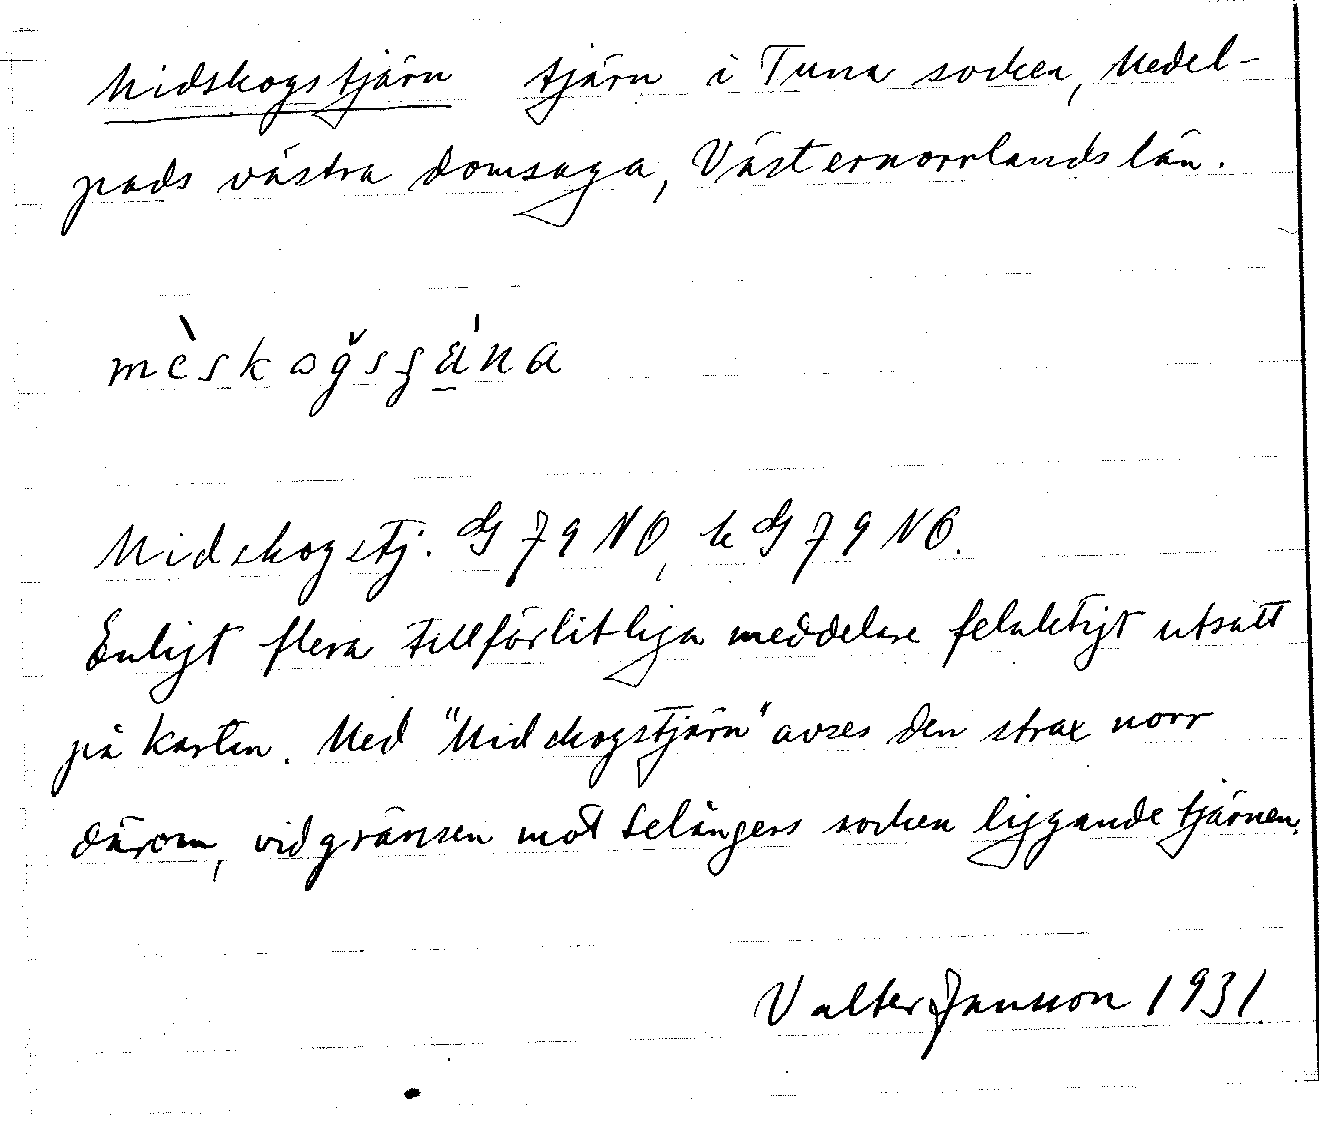 Midskogstjärn tjärn i Tuna socken, Medel-
pads västra domsaga, Västernorrlands län.
mèskoğsʂä́na
Midskogstj. G 79 NO, k G 79 NO.
Enligt flera tillförlitliga meddelare felaktigt utsatt
på kartan. Med "Midskogstjärn" avses den strax norr
därom, vid gränsen mot Selångers socken liggande tjärnen.
Valter Jansson 1931.